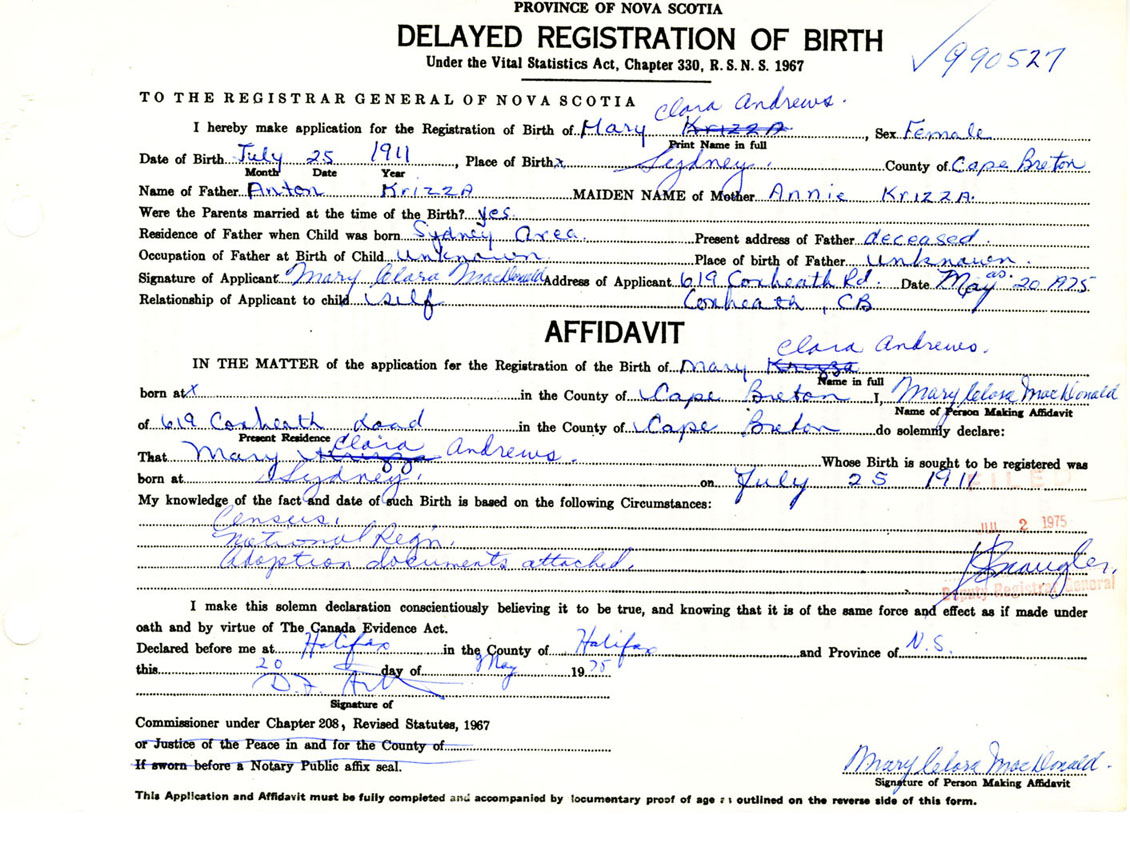 PROVINCE OF NOVA SCOTIA
DELAYED REGISTRATION OF BIRTH
Under the Vital Statistics Act, Chapter 330, R. S. N. S. 1967
✓990527
TO THE REGISTRAR GENERAL OF NOVA SCOTIA
Clara Andrews.
I hereby make application for the Registration of Birth of Mary Krizza, Sex Female
Print Name in full
Date of Birth July 25 1911, Place of Birth x Sydney. County of Cape Breton
Month Date Year
Name of Father Anton Krizza MAIDEN NAME of Mother Annie Krizza.
Were the Parents married at the time of the Birth? yes
Residence of Father when Child was born Sydney Area. Present address of Father deceased.
Occupation of Father at Birth of Child unknown. Place of birth of Father unknown.
Signature of Applicant Mary Clara MacDonald Address of Applicant 619 Coxheath Rd. Date May 20 1975
Relationship of Applicant to child self Coxheath, CB
AFFIDAVIT
Clara Andrews.
IN THE MATTER of the application for the Registration of the Birth of Mary Krizza
Name in full
born at x in the County of Cape Breton I, Mary Clara MacDonald
Name of Person Making Affidavit
of 619 Coxheath Road in the County of Cape Breton do solemnly declare:
Present Residence
Clara
That Mary Krizza Andrews. Whose Birth is sought to be registered was
born at Sydney. on July 25 1911
FILED
My knowledge of the fact and date of such Birth is based on the following Circumstances:
Census.
JUL 2 1975
National Regn.
Adoption documents attached.
Deputy Registrar General
I make this solemn declaration conscientiously believing it to be true, and knowing that it is of the same force and effect as if made under
oath and by virtue of The Canada Evidence Act.
Declared before me at Halifax in the County of Halifax and Province of N.S.
this 20 day of May 1975
Signature of
Commissioner under Chapter 208, Revised Statutes, 1967
or Justice of the Peace in and for the County of
If sworn before a Notary Public affix seal.
Mary Clara MacDonald.
Signature of Person Making Affidavit
This Application and Affidavit must be fully completed and accompanied by documentary proof of age as outlined on the reverse side of this form.